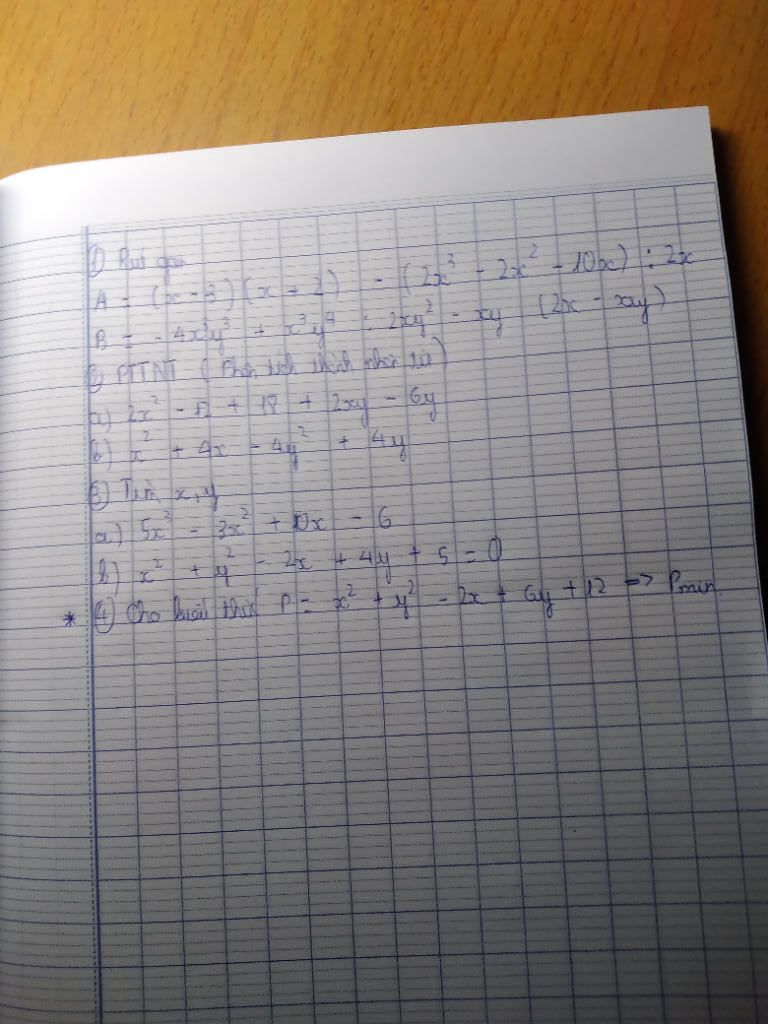 ① Rút gọn
A = (x - 3)(x + 2) - (2x³ - 2x² - 10x) : 2x
B = - 4x³y³ + x³y⁴ : 2xy² - xy (2x - xy)
② PTTNT (Phân tích thành nhân tử)
a) 2x² - 12 + 18 + 2xy - 6y
b) x² + 4x - 4y² + 4y
③ Tìm x, y
a) 5x³ - 3x² + 10x - 6
b) x² + y² - 2x + 4y + 5 = 0
* ④ Cho biểu thức P = x² + y² - 2x + 6y + 12 => Pmin